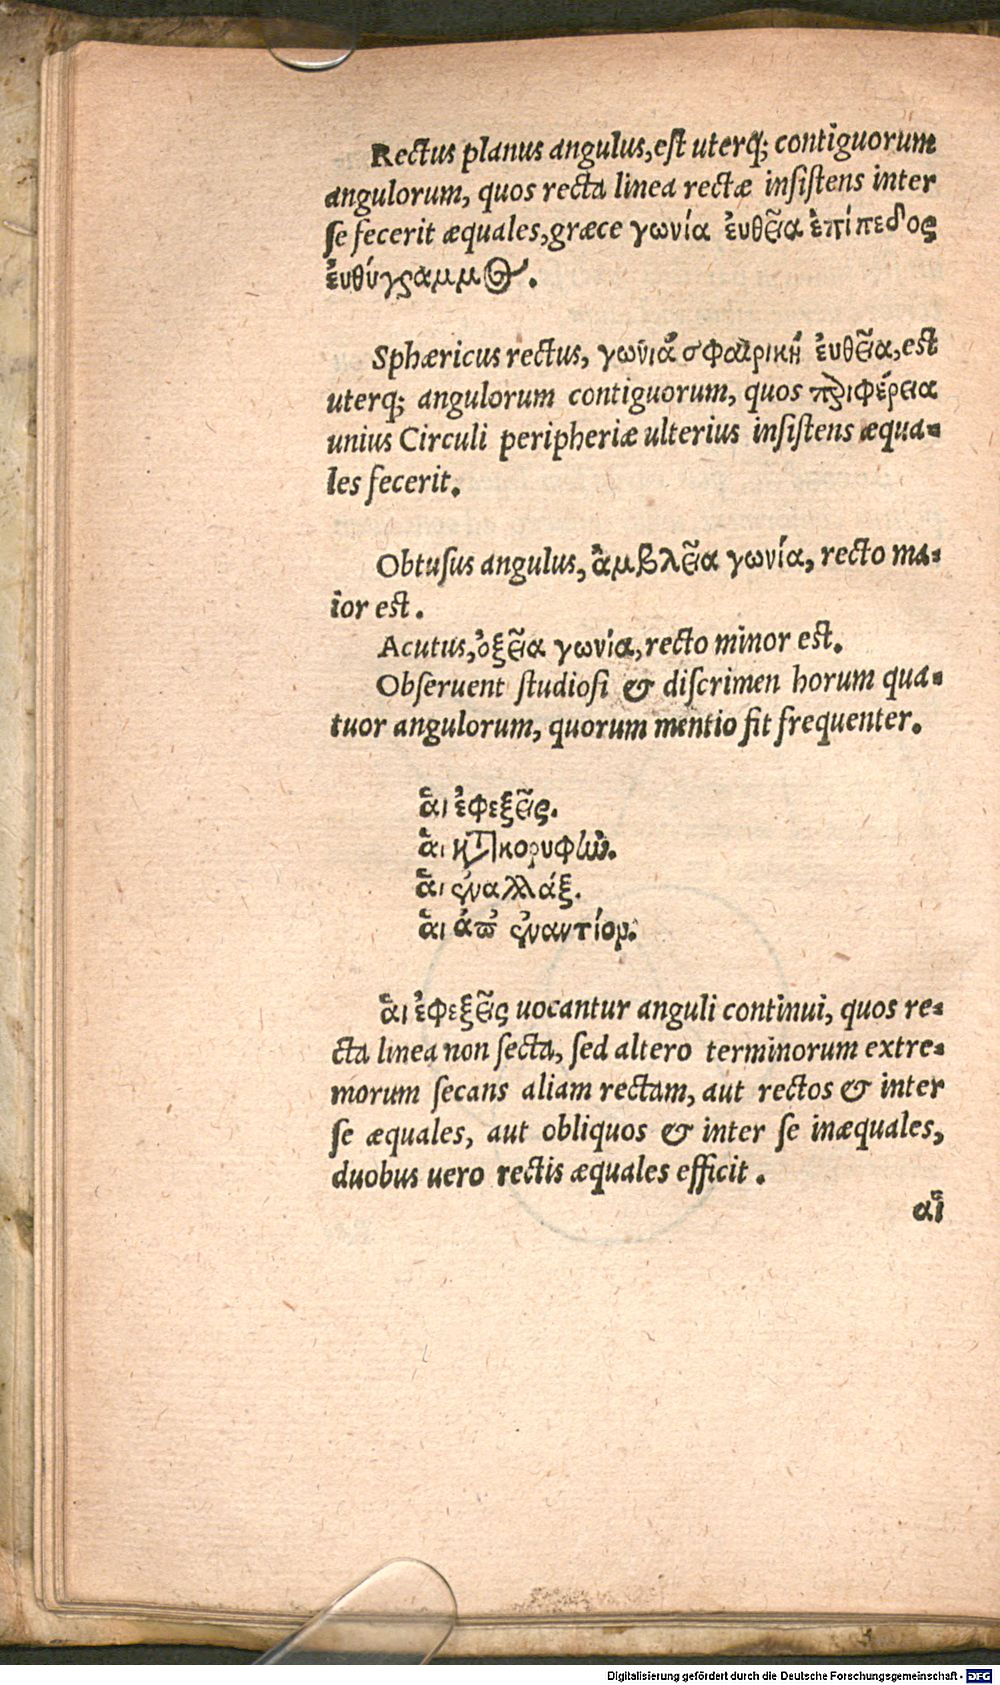 Rectus planus angulus, eſt uterq; contiguorum
angulorum, quos recta linea rectæ inſiſtens inter
ſe fecerit æquales, græce γωνία ἐυθεῖα ἐπίπεδος
ἐυθύγραμμος.
Sphæricus rectus, γωνιὰ σφαιρικὴ ἐυθεῖα, eſt
uterq; angulorum contiguorum, quos περιφέρεια
unius Circuli peripheriæ ulterius inſiſtens æqua-
les fecerit.
Obtuſus angulus, ἀμβλεῖα γωνία, recto ma-
ior eſt.
Acutus, ὀξεῖα γωνία, recto minor eſt.
Obſeruent ſtudioſi & diſcrimen horum qua-
tuor angulorum, quorum mentio fit frequenter.
ἅι ἐφεξεῖς.
ἅι κατὰ κορυφὼ.
ἅι ἐναλλάξ.
ἅι ἀπὸ ἐναντίον.
ἅι ἐφεξεῖς uocantur anguli continui, quos re-
cta linea non ſecta, ſed altero terminorum extre-
morum ſecans aliam rectam, aut rectos & inter
ſe æquales, aut obliquos & inter ſe inæquales,
duobus uero rectis æquales efficit.
αἳ
Digitalisierung gefördert durch die Deutsche Forschungsgemeinschaft - DFG